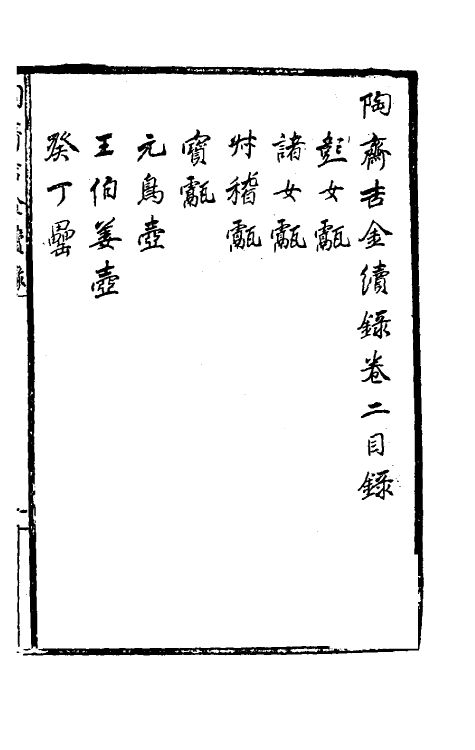 陶齋吉金續錄卷二目錄
彭女甗
諸女甗
艸稽甗
寶甗
元鳥壺
王伯姜壺
癸丁罍